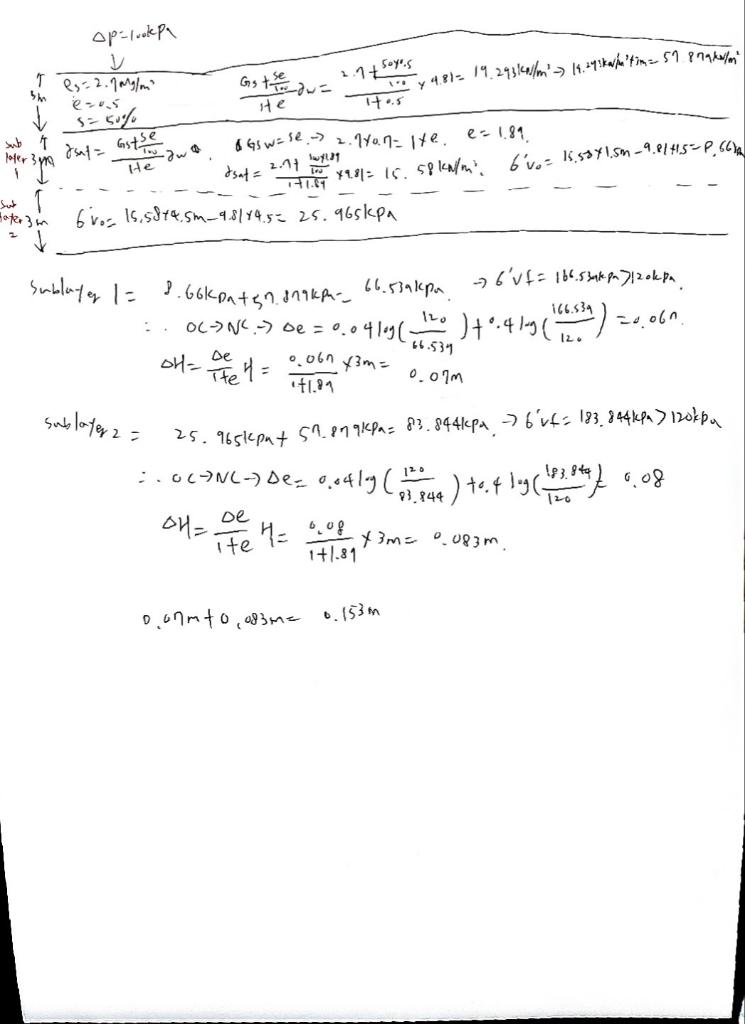 Δp=100kpa
ρs=2.7Mg/m³
e=0.5
s=50%
3m
(Gs+Se/100)/(1+e) γw = (2.7+50×0.5/100)/(1+0.5) ×9.81= 19.293kN/m³ → 19.293kN/m³×3m= 57.879kN/m²
sub layer 1
3m
γsat= (Gs+Se/100)/(1+e) γw. GsW=Se. → 2.7×0.7= 1×e. e=1.89.
γsat= (2.7+100×1.89/100)/(1+1.89) ×9.81= 15.58kN/m³. σ'vo= 15.58×1.5m-9.81×1.5= 8.66kpa
sub layer 2
3m
σ'vo= 15.58×4.5m-9.81×4.5= 25.965kpa
Sublayer 1= 8.66kpa+57.879kpa= 66.539kpa. → σ'vf= 166.539kpa>120kpa.
∴ OC→NC. → Δe= 0.04log(120/66.539)+0.4log(166.539/120)=0.067.
ΔH= Δe/(1+e) H= 0.067/(1+1.89) ×3m= 0.07m
Sublayer 2= 25.965kpa+57.879kpa= 83.844kpa. → σ'vf= 183.844kpa>120kpa
∴ OC→NC→Δe= 0.04log(120/83.844)+0.4log(183.844/120)= 0.08
ΔH= Δe/(1+e) H= 0.08/(1+1.89) ×3m= 0.083m.
0.07m+0.083m= 0.153m